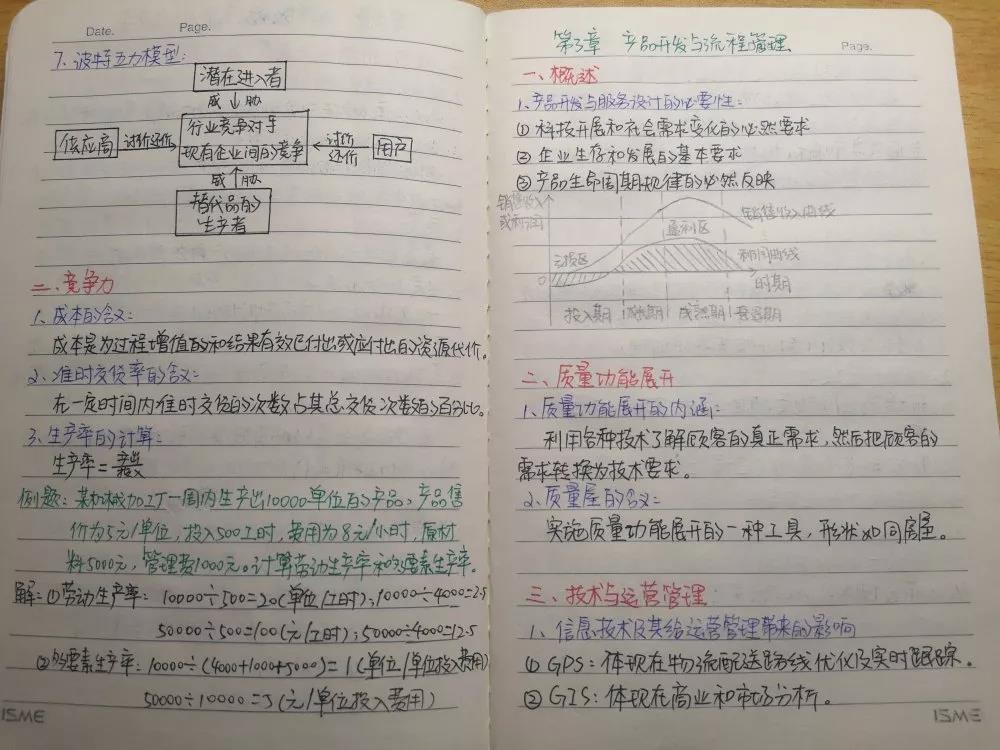 Date. Page.
7. 波特五力模型:
潜在进入者
威↓胁
供应商
讨价还价
行业竞争对手
现有企业间的竞争
讨价
还价
用户
威↑胁
替代品的
生产者
二、竞争力
1、成本的含义:
成本是为过程增值的和结果有效已付出或应付出的资源代价。
2、准时交货率的含义:
在一定时间内准时交货的次数占其总交货次数的百分比。
3、生产率的计算:
生产率=
例题: 某机械加工厂一周内生产出10000单位的产品,产品售
价为5元/单位,投入500工时,费用为8元/小时,原材
料5000元,管理费1000元。计算劳动生产率和多要素生产率。
解: ①劳动生产率: 10000÷500=20(单位/工时); 10000÷4000=2.5
50000÷500=100(元/工时); 50000÷4000=12.5
②多要素生产率: 10000÷(4000+1000+5000)=1(单位/单位投入费用)
50000÷10000=5(元/单位投入费用)
ISME
第3章 产品开发与流程管理
Page.
一、概述
1、产品开发与服务设计的必要性:
① 科技开展和社会需求变化的必然要求
② 企业生存和发展的基本要求
③ 产品生命周期规律的必然反映
销售收入
或利润
销售收入曲线
盈利区
亏损区
利润曲线
0
时期
投入期 成长期 成熟期 衰退期
二、质量功能展开
1、质量功能展开的内涵:
利用各种技术了解顾客的真正需求,然后把顾客的
需求转换为技术要求。
2、质量屋的含义:
实施质量功能展开的一种工具,形状如同房屋。
三、技术与运营管理
1、信息技术及其给运营管理带来的影响
① GPS: 体现在物流配送路线优化及实时跟踪。
② GIS: 体现在商业和市场分析。
ISME